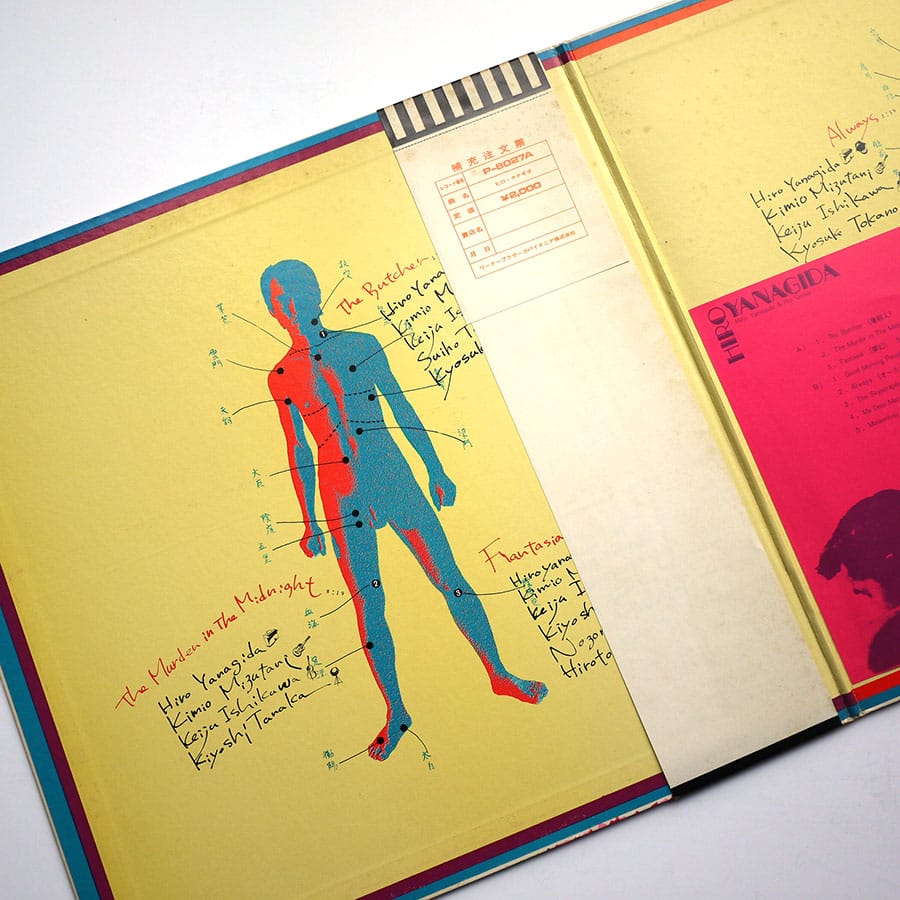 補充注文票
レコード番号 P-8027A
曲名 ヒロ・ヤナギダ
定価 ¥2,000
貴店名
月日
ワーナーブラザーズパイオニア株式会社
The Butcher
Hiro Yana
Kimio M
Keiju Is
Suiho T
Kyosuk
雲門
天谿
大巨
陰廉
五里
血海
太白
The Murder in The Midnight
Hiro Yanagida
Kimio Mizutani
Keiju Ishikawa
Kiyoshi Tanaka
Fantasia
Hiro Yana
Kimio M
Keiju I
Kiyosh
Nozo
Hiroto
Always
Hiro Yanagida
Kimio Mizutani
Keiju Ishikawa
Kyosuke Tokano
HIRO YANAGIDA
A) 1. The Butcher
2. The Murder in The Mid
3. Fantasia
B) 1. Good Morning Peop
2. Always
3. The Skyscraper
4. My Dear Mary
5. Melancholy